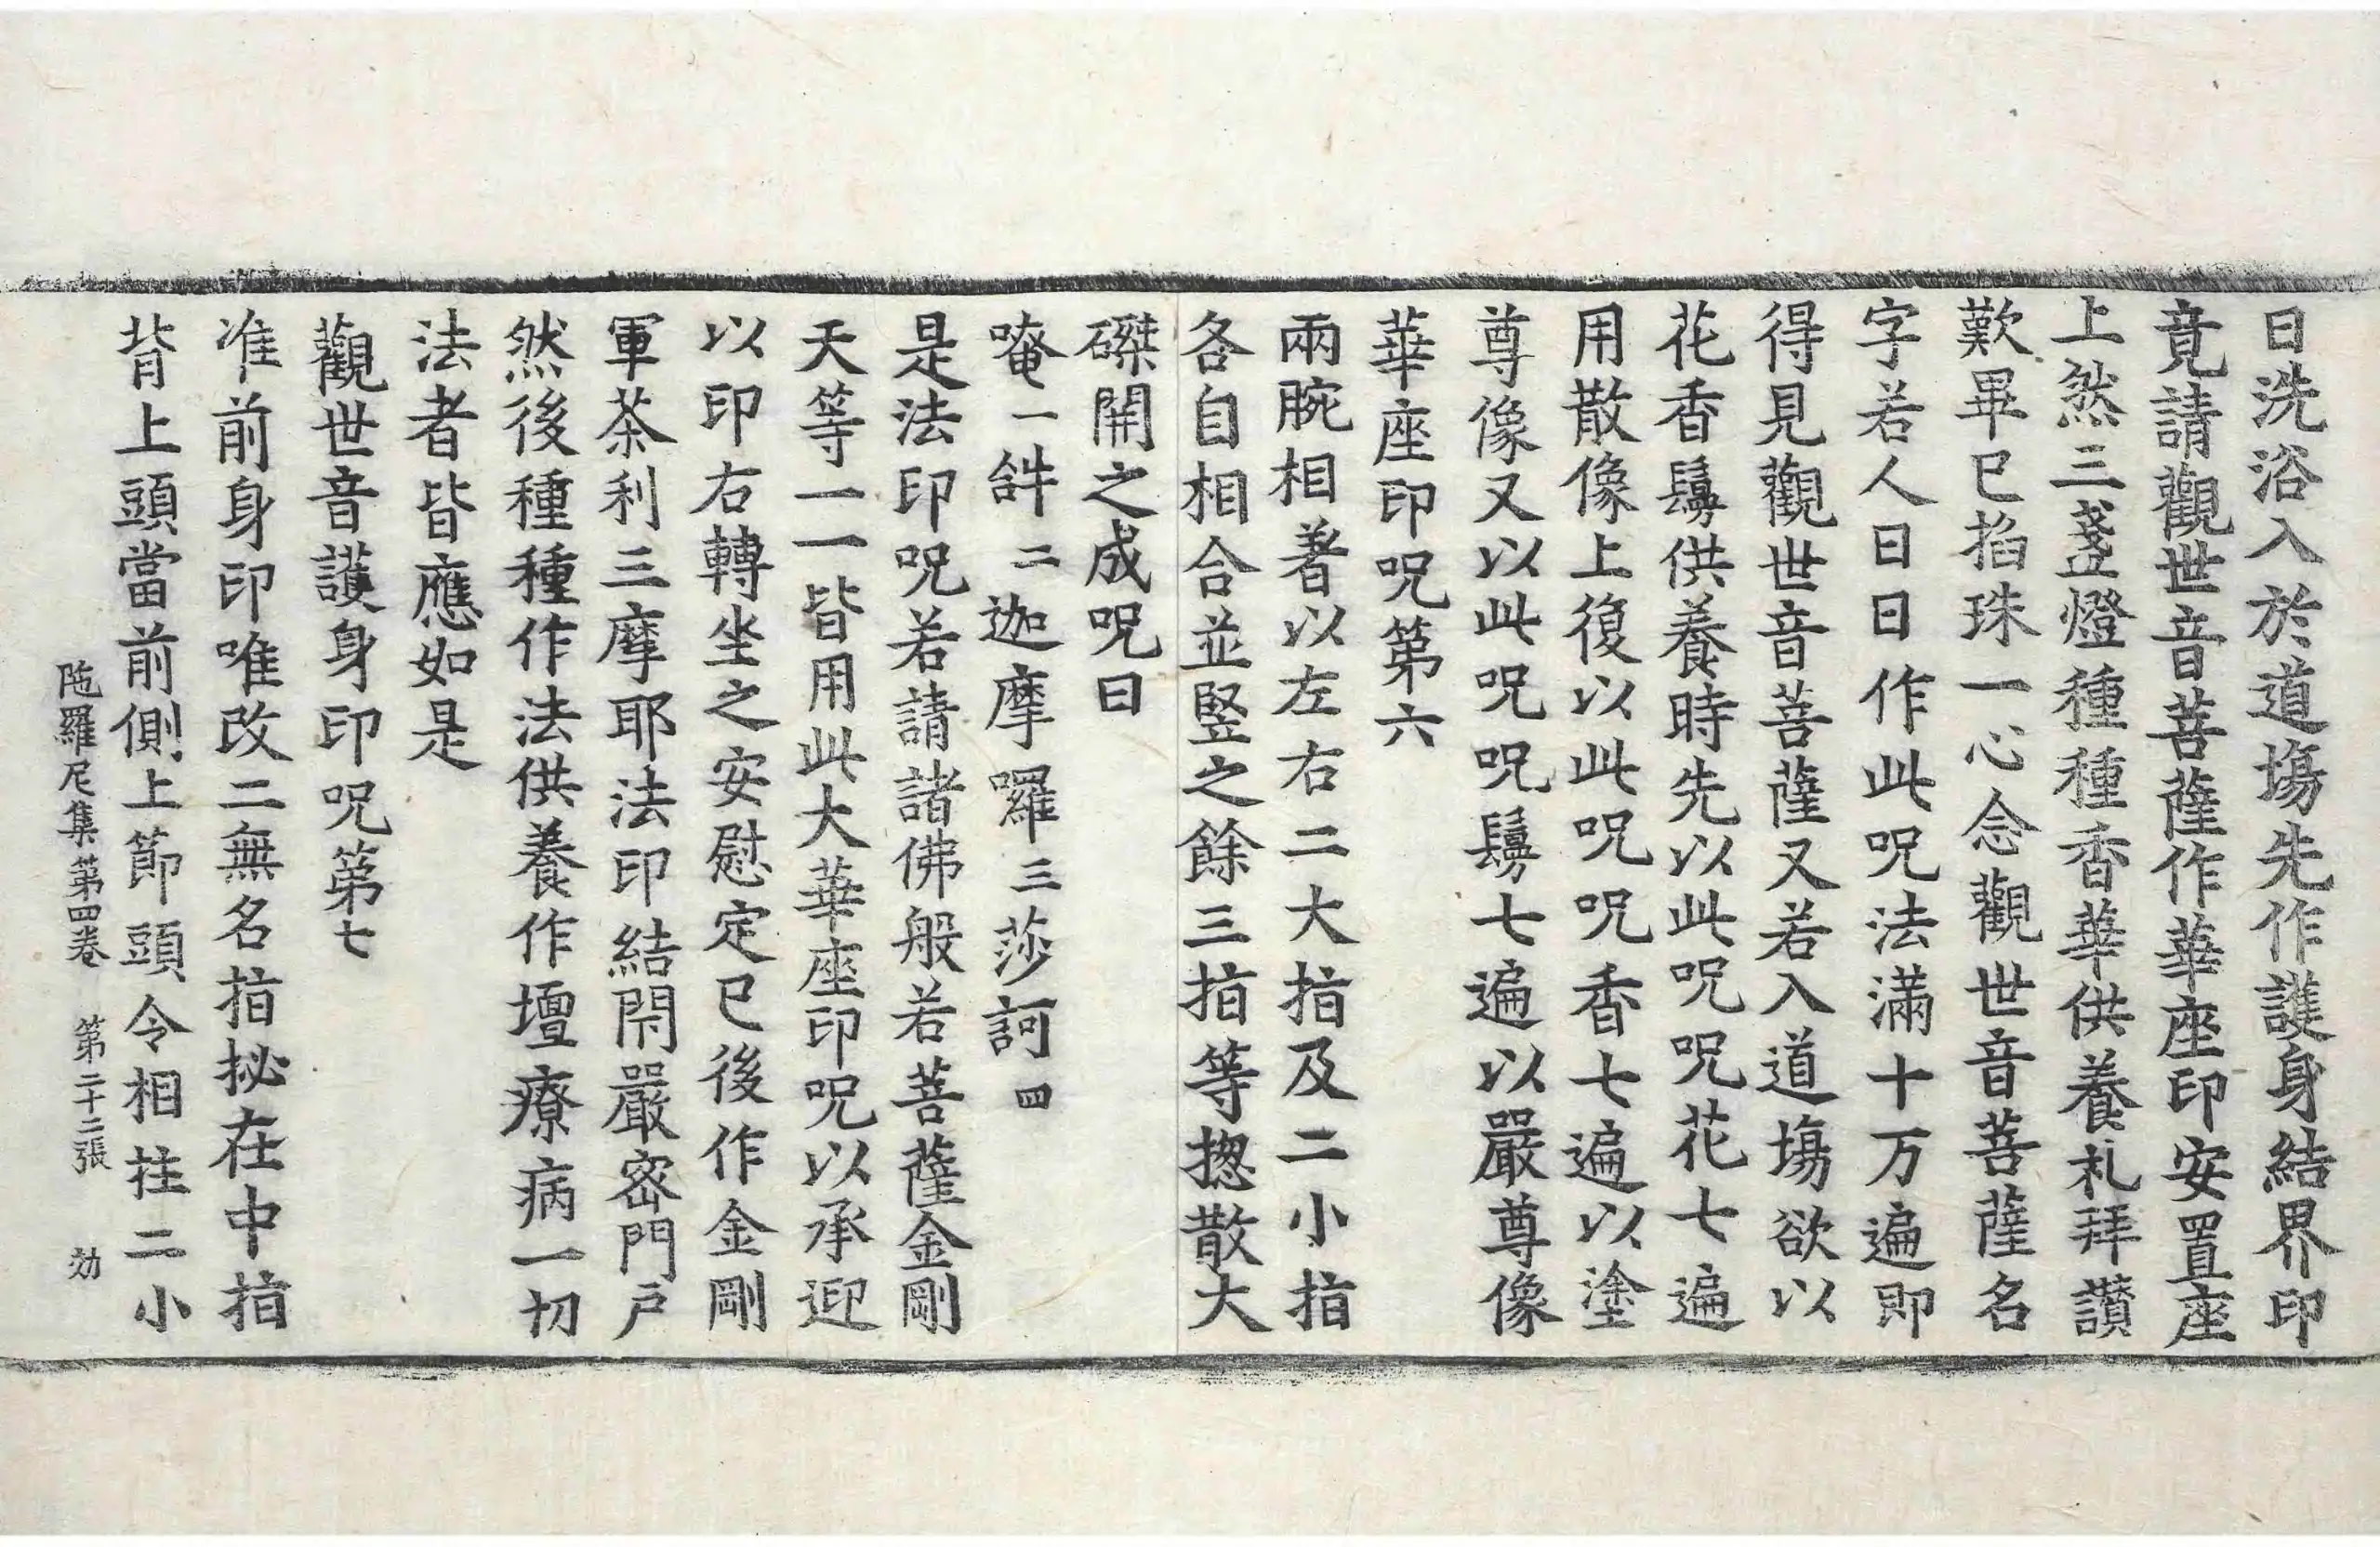 日洗浴入於道場先作護身結界印
竟請觀世音菩薩作華座印安置座
上然三盞燈種種香華供養礼拜讃
歎畢已掐珠一心念觀世音菩薩名
字若人日日作此呪法滿十万遍即
得見觀世音菩薩又若入道場欲以
花香鬘供養時先以此呪呪花七遍
用散像上復以此呪呪香七遍以塗
尊像又以此呪呪鬘七遍以嚴尊像
華座印呪第六
兩腕相著以左右二大指及二小指
各自相合並竪之餘三指等揔散大
磔開之成呪曰
唵一𤙖二迦摩囉三莎訶四
是法印呪若請諸佛般若菩薩金剛
天等一一皆用此大華座印呪以承迎
以印右轉坐之安慰定已後作金剛
軍茶利三摩耶法印結閇嚴宻門戶
然後種種作法供養作壇療病一切
法者皆應如是
觀世音護身印呪第七
准前身印唯改二無名指拟在中指
背上頭當前側上節頭令相拄二小
陁羅尼集第四卷　第二十二張　効